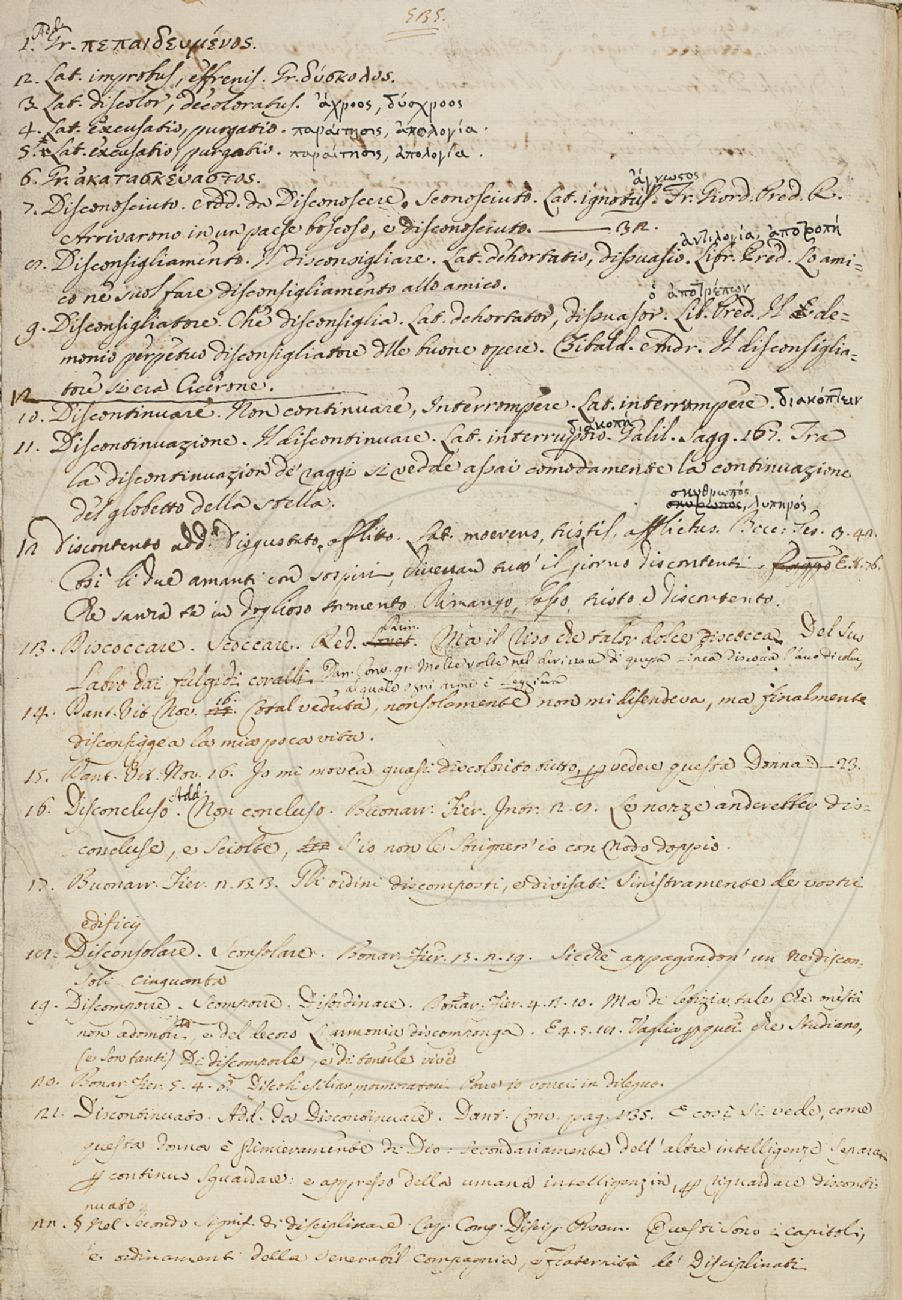 585.
1. Add. Gr. πεπαιδευμένος.
12. Lat. improbus, effrenis. Gr. δύσκολος.
3. Lat. discolor, decoloratus. ἄχροος, δύσχροος
4. Lat. Excusatio, purgatio. παραίτησις, ἀπολογία.
5. Lat. excusatio, purgatio. παραίτησις, ἀπολογία.
6. Gr. ἀκατασκεύαστος.
ἄγνωστος
7. Disconosciuto. Add. da Disconoscere. Sconosciuto. Lat. ignotus. Fr. Giord. Pred. R.
Arrivarono in un paese boscoso, e disconosciuto.
ἀντιλογία, ἀποτροπή
Disconsigliamento. Il disconsigliare. Lat. dehortatio, dissuasio. Libr. Pred. Lo ami-
co ne suol fare disconsigliamento allo amico.
ὁ ἀποτρέπων
9. Disconsigliatore. Che disconsiglia. Lat. dehortator, dissuasor. Lib. Pred. Il de-
monio perpetuo disconsigliatore delle buone opere. Tibald. Andr. Il disconsiglia-
tore si era Cicerone.
12
10. Discontinuare. Non continuare, Interrompere. Lat. interrompere. διακόπτειν
διακοπή
11. Discontinuazione. Il discontinuare. Lat. interruptio. Galil. Sagg. Tra
la discontinuazion de' raggi si vedde assai comodamente la continuazione
del globetto della stella.
σκυθρωπός
σκυθρωπός, λυπηρός
12 Discontento add. Disgustato, afflito. Lat. moerens, tristis, afflictus. Bocc. Tes. 3.
Così li due amanti con sospiri, tutt' il giorno discontenti
Che sanza te in doglioso tormento Rimango, lasso, tristo e discontento.
13. Discoccare. Scoccare. Red. Ma il viso che talor dolce discocca Del suo
Labro dai fulgidi coralli. Dan. Conv. 91. Molte volte nel
14. Dant. Vit. Nov. 16. Cotal veduta, non solamente non mi difendeva, ma finalmente
disconfiggea la mia poca vita.
15. Dant. Vit. Nov. 16. Io mi movea quasi discolorito tutto, per vedere questa Donna 23.
16. Disconcluso Add. Non concluso. Buonarr. Fier. Le nozze anderebber dis-
concluse, e sciolte, S'io non le strigness' io con nodo doppio.
17. Buonarr. Fier. Gli ordini discomposti, e divisati Sinistramente de vostri
edificij
Disconsolare. Sconsolare. Bonar. Fier. Sicchè appagandon' un ne discon-
soli cinquanta
19. Discomporre. Scomporre. Disordinare. Bonar. Fier. 4. Ma di letizia tale che onestà
non adombri, e del decoro L'armonia discomponga. E 4. 5. Vaglia per quei che Studiano,
(e son tanti) Di discomporle, e di tenerle vive
Bonar. Fier. 5. 4. 6. Discoli esiliar,
21. Discontinuato. Add. da Discontinuare. Dant. Conv. pag. 135. E così si vede, come
questa donna è primieramente di Dio: secondariamente dell' altre intelligenze
per continuo sguardare: e appresso della umana intelligenzia, per riguardare disconti-
nuato
§ Nel secondo signif. di disciplinare. Cap. Comp. Discip. Proem. Questi sono i capitoli,
e ordinamenti della venerabil compagnia, e fraternità de' Disciplinati